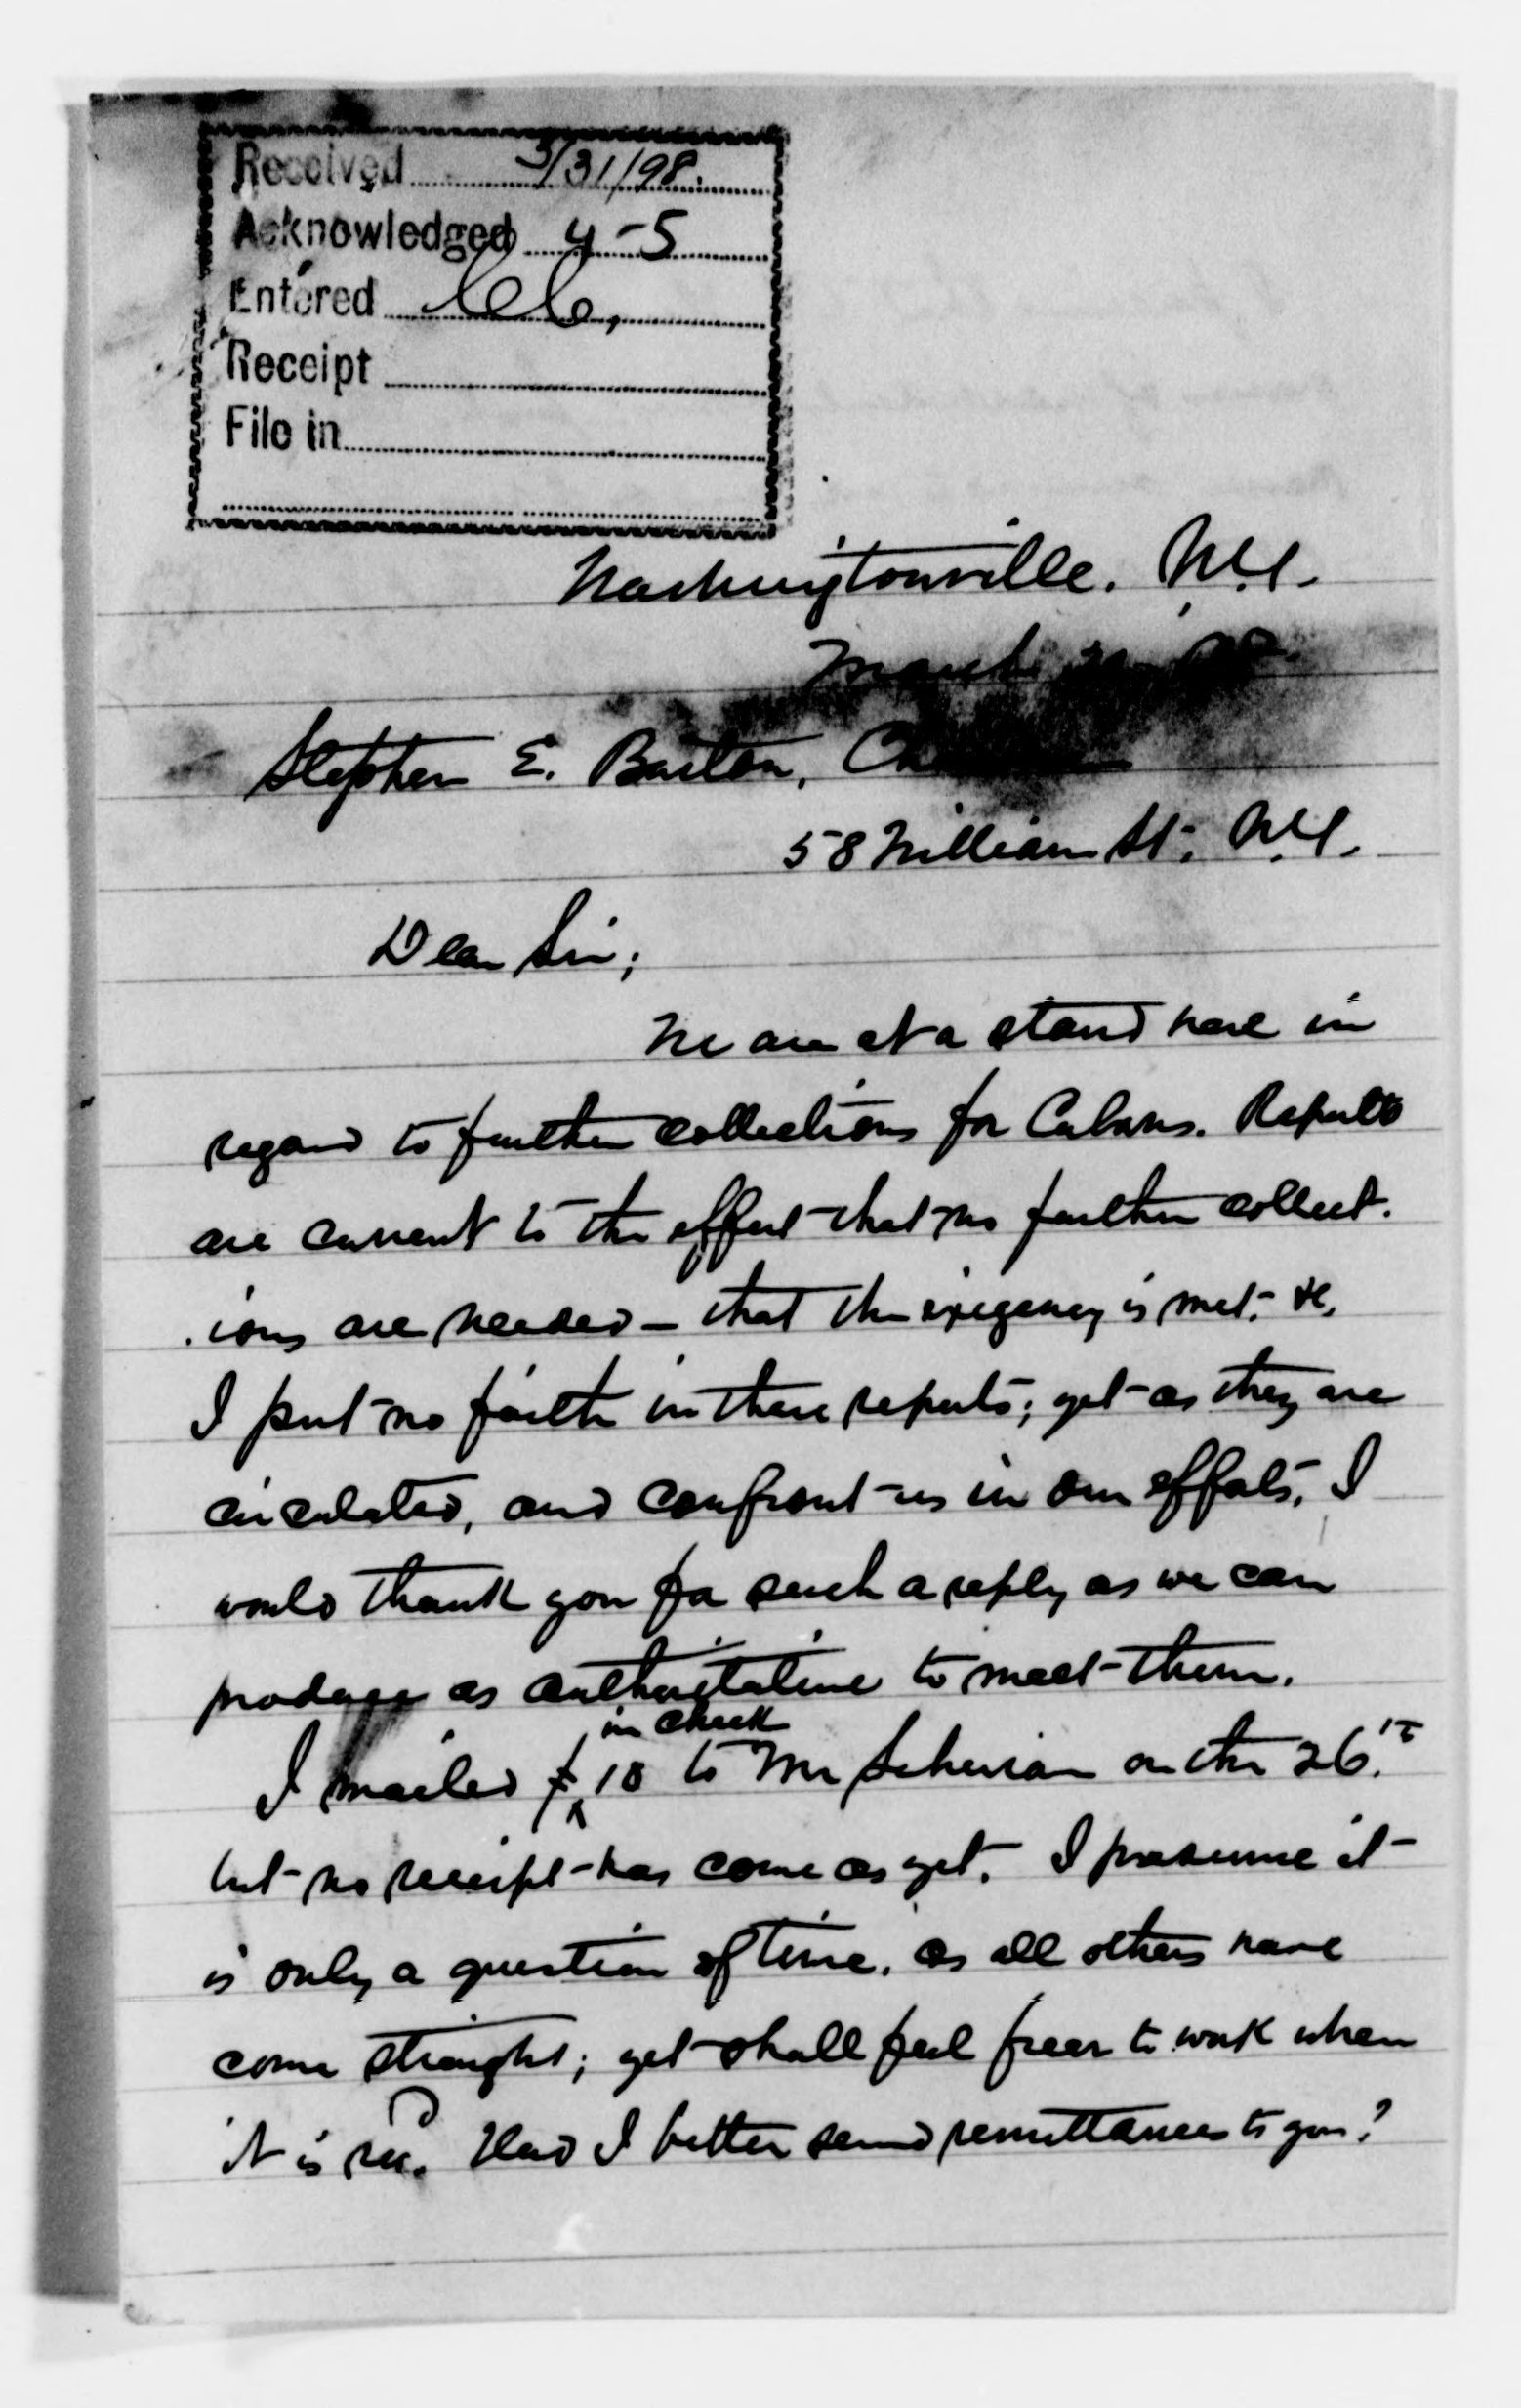 Received 3/31/98.
Acknowledged 4-5
Entered
Receipt
File in
Washingtonville. N.Y.
March
Stephen E. Barton,
58 William St. N.Y.
Dear Sir;
We are at a stand here in
regard to further collections for Cubans. Reports
are current to the effect that no further collect-
ions are needed — that the exigency is met. &c.
I put no faith in these reports; yet as they are
circulated, and confront us in our efforts, I
would thank you for such a reply as we can
produce as authoritative to meet them.
in check
I mailed $ 18 to Mr on the 26.th
but no receipt has come as yet. I presume it
is only a question of time, as all others have
come straight; yet shall feel freer to work when
it is rec.d Had I better send remittances to you?